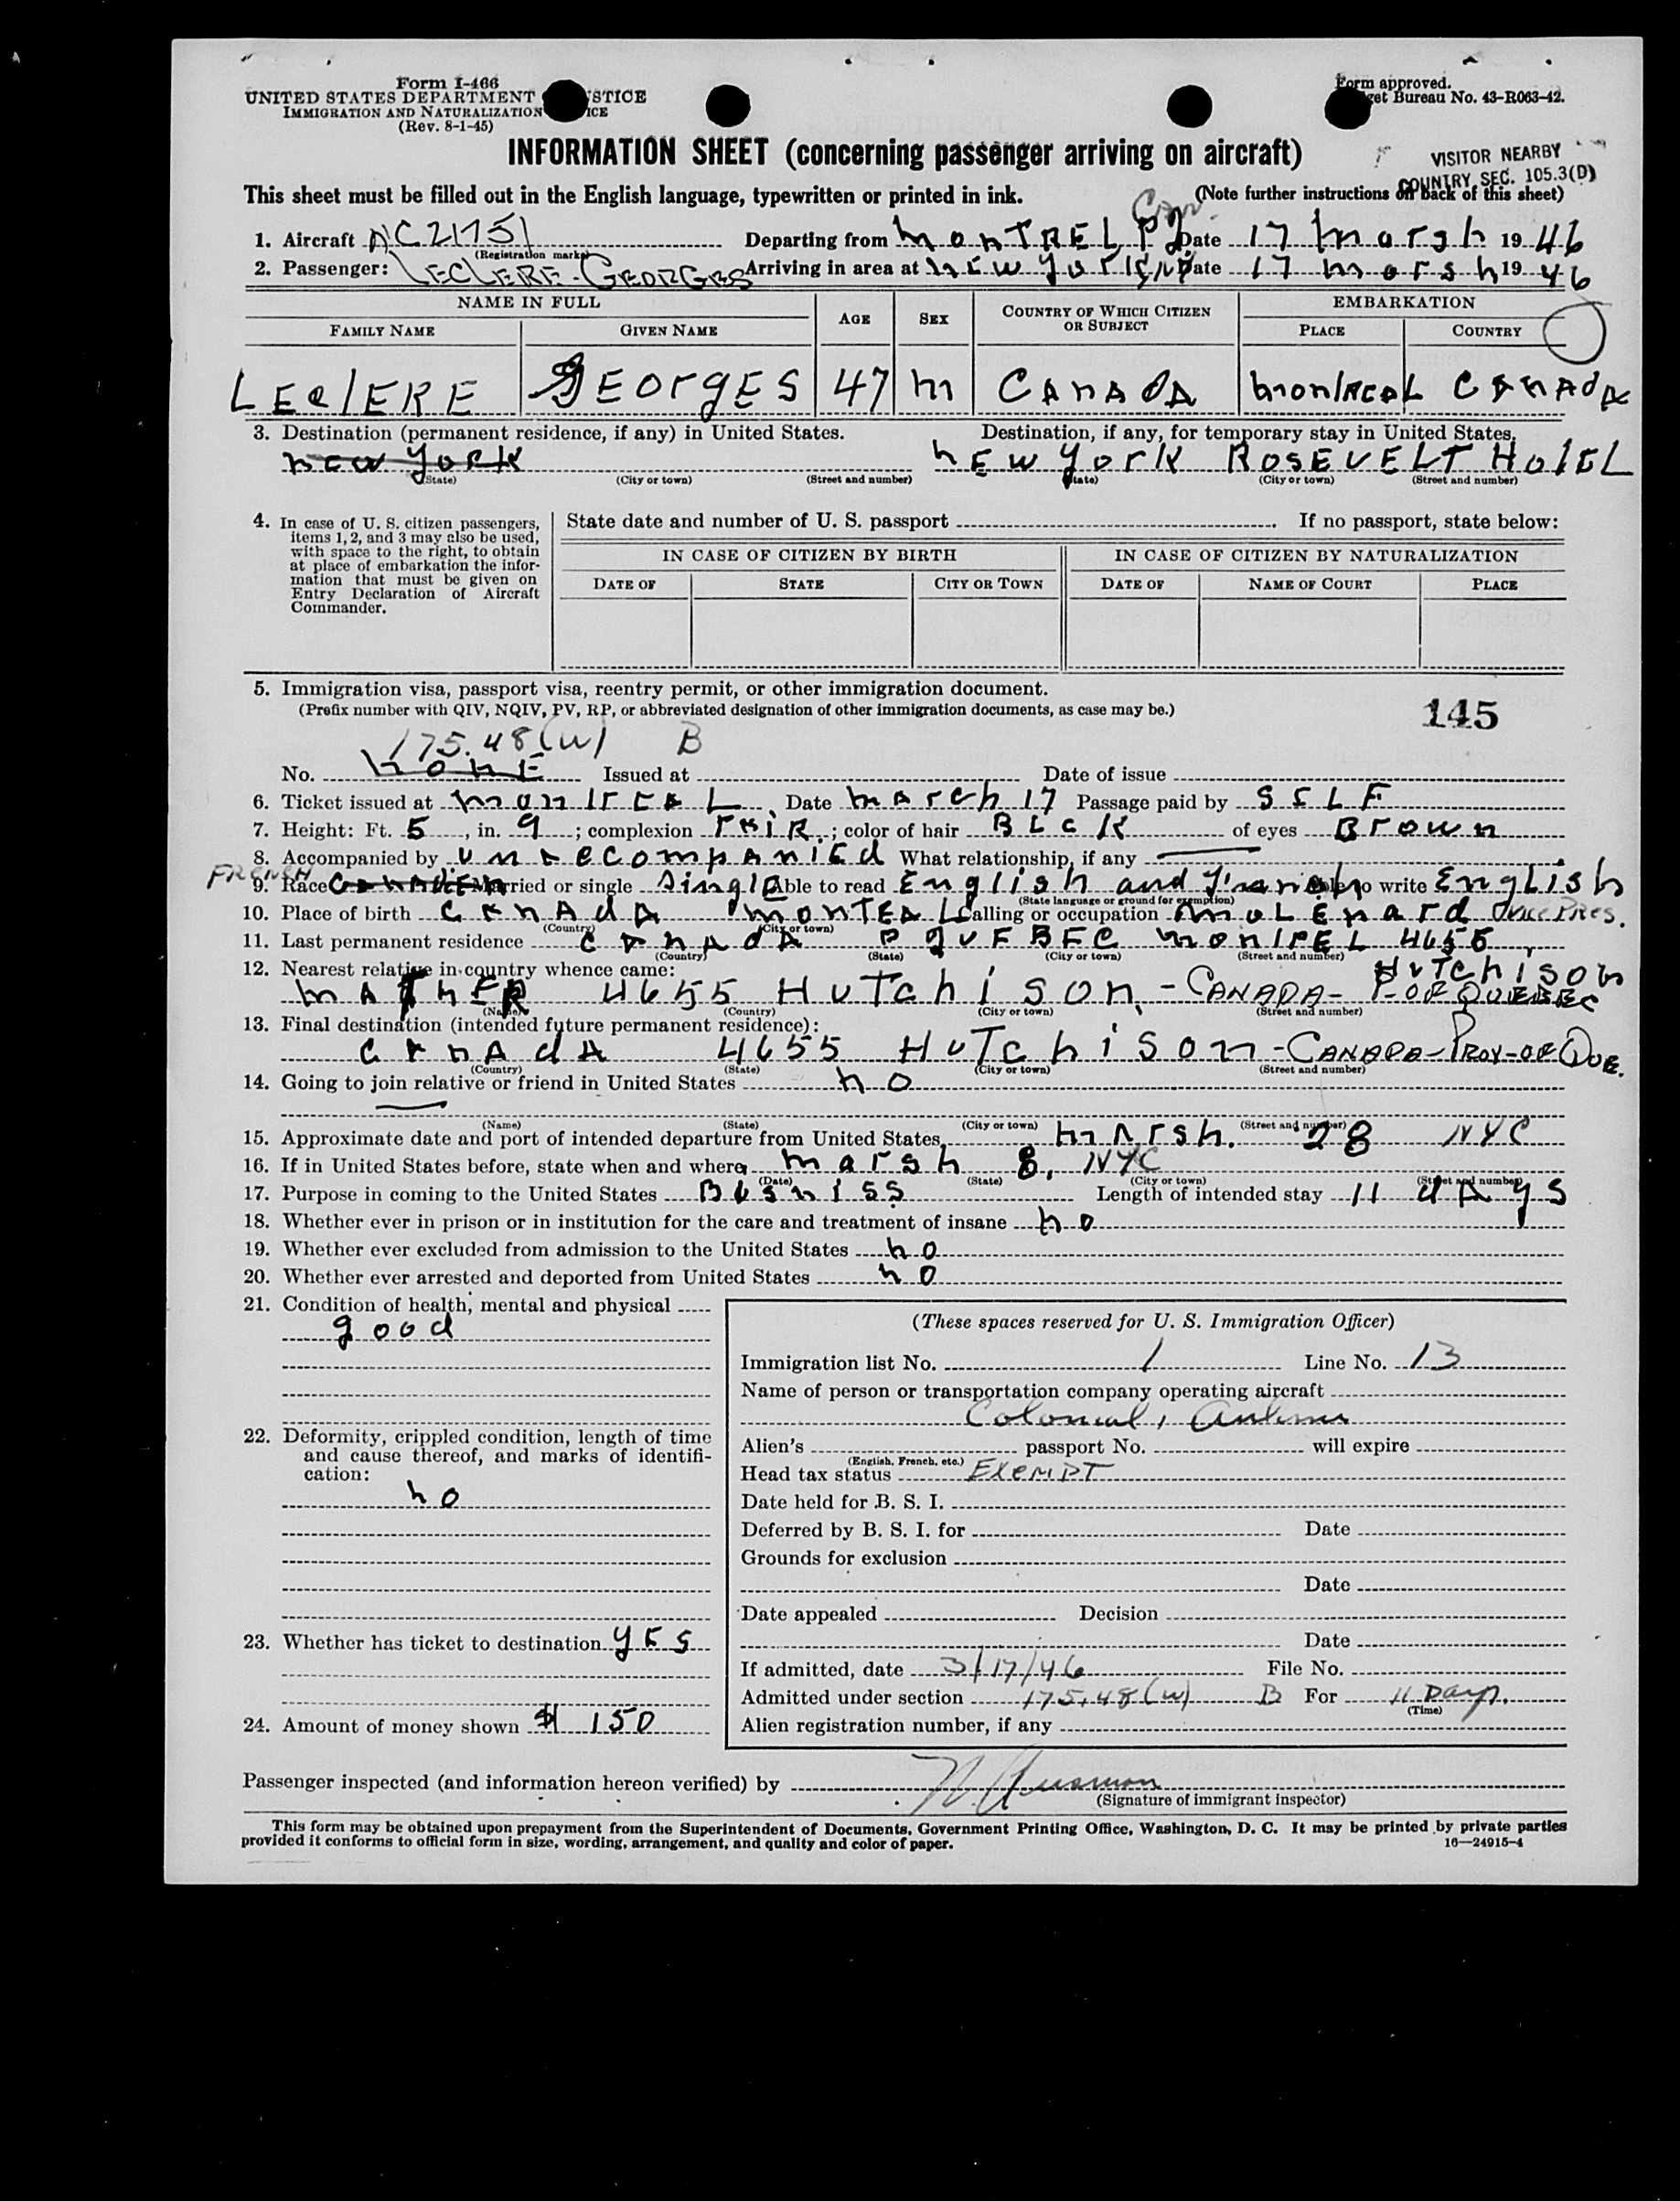 Form I-466
UNITED STATES DEPARTMENT STICE
IMMIGRATION AND NATURALIZATION ICE
(Rev. 8-1-45)
Form approved.
get Bureau No. 43-R063-42.
INFORMATION SHEET (concerning passenger arriving on aircraft)
VISITOR NEARBY
COUNTRY SEC. 105.3(D)
This sheet must be filled out in the English language, typewritten or printed in ink. (Note further instructions on back of this sheet)
Can.
1. Aircraft NC21751 Departing from MONTREL PQ Date 17 Marsh 1946
(Registration marks)
2. Passenger: LECLERE - GEORGES Arriving in area at NEW YORK NY Date 17 marsh 1946
NAME IN FULL AGE SEX COUNTRY OF WHICH CITIZEN OR SUBJECT EMBARKATION
FAMILY NAME GIVEN NAME PLACE COUNTRY
LEclERE GEOrgES 47 M CANADA MonTREAL CANADA
3. Destination (permanent residence, if any) in United States. Destination, if any, for temporary stay in United States.
NEW YORK NEW YorK ROSEVELT HOTEL
(State) (City or town) (Street and number) (State) (City or town) (Street and number)
4. In case of U. S. citizen passengers, items 1, 2, and 3 may also be used, with space to the right, to obtain at place of embarkation the information that must be given on Entry Declaration of Aircraft Commander.
State date and number of U. S. passport If no passport, state below:
IN CASE OF CITIZEN BY BIRTH IN CASE OF CITIZEN BY NATURALIZATION
DATE OF STATE CITY OR TOWN DATE OF NAME OF COURT PLACE
5. Immigration visa, passport visa, reentry permit, or other immigration document.
(Prefix number with QIV, NQIV, PV, RP, or abbreviated designation of other immigration documents, as case may be.)
145
175.48(W) B
No. NONE Issued at Date of issue
6. Ticket issued at MonTREAL Date March 17 Passage paid by SELF
7. Height: Ft. 5, in. 9; complexion FAIR; color of hair BLCK of eyes Brown
8. Accompanied by UNAccompANIEd What relationship, if any
FRENCH
9. Race Married or single Single Able to read English and French Able to write EngLish
(State language or ground for exemption)
10. Place of birth CANAdA MONTEAL Calling or occupation Vice Pres.
(Country) (City or town)
11. Last permanent residence CANAdA PQUEBEC MONTREL 4655
(Country) (State) (City or town) (Street and number)
HUTchison
12. Nearest relative in country whence came:
MATHER 4655 HUTchison - CANADA - P-OF QUEBEC
(Name) (Country) (City or town) (Street and number)
13. Final destination (intended future permanent residence):
CANAdA 4655 HUTchison - CANADA - PROV-OF QUE.
(Country) (State) (City or town) (Street and number)
14. Going to join relative or friend in United States NO
(Name) (State) (City or town) (Street and number)
15. Approximate date and port of intended departure from United States MArsh. 28 NYC
16. If in United States before, state when and where marsh 8, NYC
(Date) (State) (City or town) (Street and number)
17. Purpose in coming to the United States Busniss Length of intended stay 11 dAys
18. Whether ever in prison or in institution for the care and treatment of insane NO
19. Whether ever excluded from admission to the United States NO
20. Whether ever arrested and deported from United States NO
21. Condition of health, mental and physical
good
22. Deformity, crippled condition, length of time and cause thereof, and marks of identification:
NO
23. Whether has ticket to destination yES
24. Amount of money shown $ 150
(These spaces reserved for U. S. Immigration Officer)
Immigration list No. 1 Line No. 13
Name of person or transportation company operating aircraft
Colonial Airlines
Alien's passport No. will expire
(English, French, etc.)
Head tax status EXEMPT
Date held for B. S. I.
Deferred by B. S. I. for Date
Grounds for exclusion
Date
Date appealed Decision
Date
If admitted, date 3/17/46 File No.
Admitted under section 175.48(W) B For 11 Days.
(Time)
Alien registration number, if any
Passenger inspected (and information hereon verified) by
(Signature of immigrant inspector)
This form may be obtained upon prepayment from the Superintendent of Documents, Government Printing Office, Washington, D. C. It may be printed by private parties
provided it conforms to official form in size, wording, arrangement, and quality and color of paper. 16—24915-4